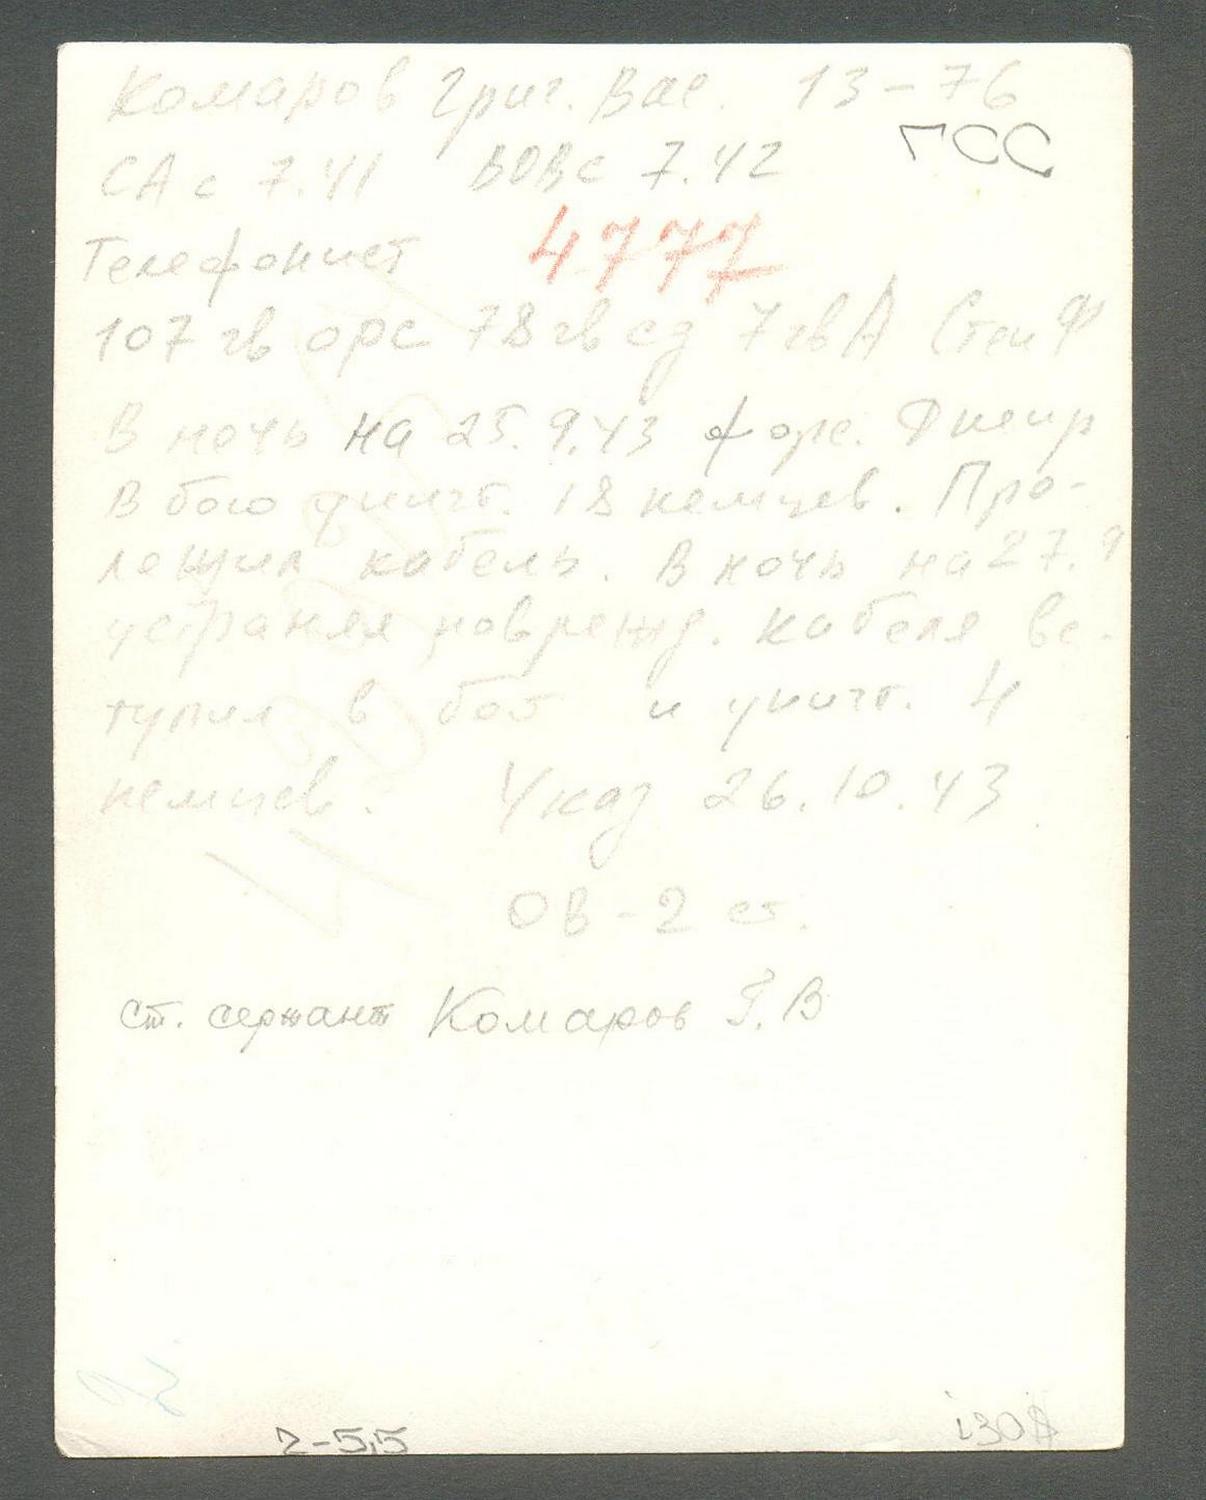 Комаров Григ. Вас. 13-76
ГСС
СА с 7.41 ВОВ с 7.42
Телефонист 4777
107 гв орс 78 гв сд 7 гв А Степ Ф
В ночь на 25.9.43 форс. Днепр
В бою уничт. 18 немцев. Про-
ложил кабель. В ночь на 27.9
устраняя поврежд. кабеля вс-
тупил в бой и уничт. 4
немцев. Указ 26.10.43
ОВ-2 ст.
ст. сержант Комаров Г.В
2-5,5